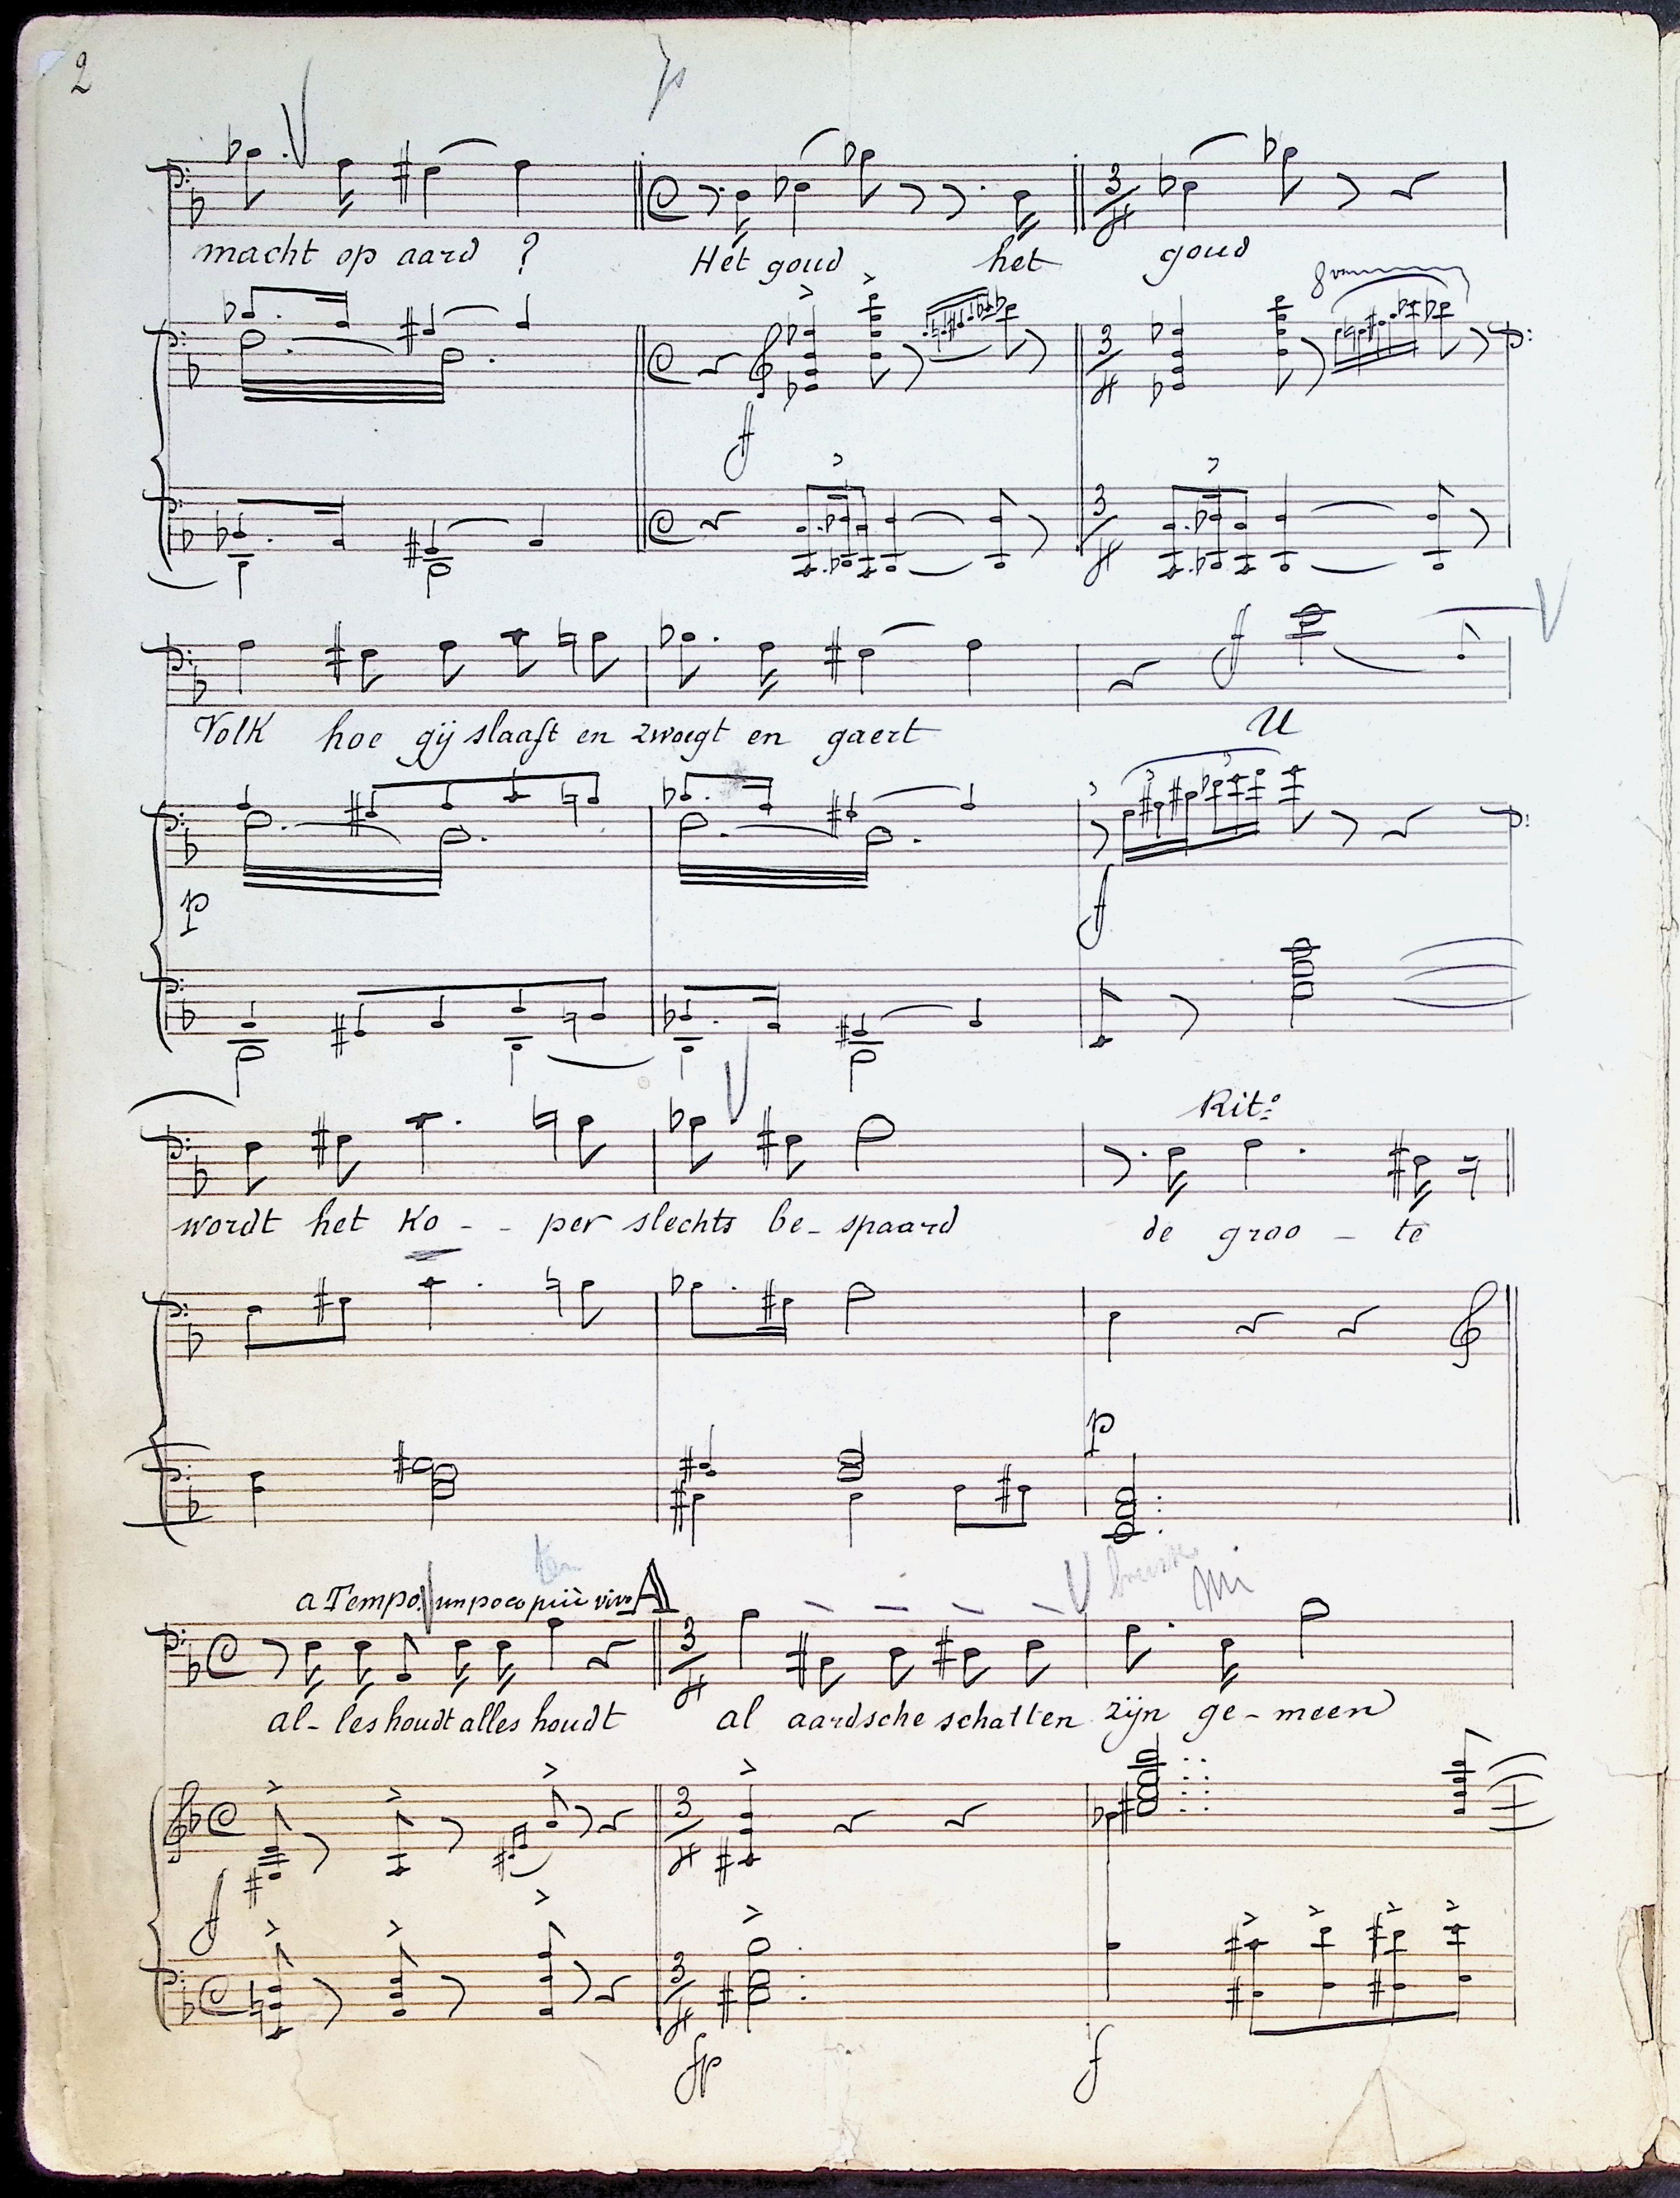 2
macht op aard ? Het goud het goud
8va
f
Volk hoe gij slaaft en zwoegt en gaert U
f
p
f
Rit:
wordt het Ko - - per slechts be - spaard de groo - te
p
a Tempo un poco più vivo A
al - les houdt alles houdt al aardsche schatten zijn ge - meen
f
fp f